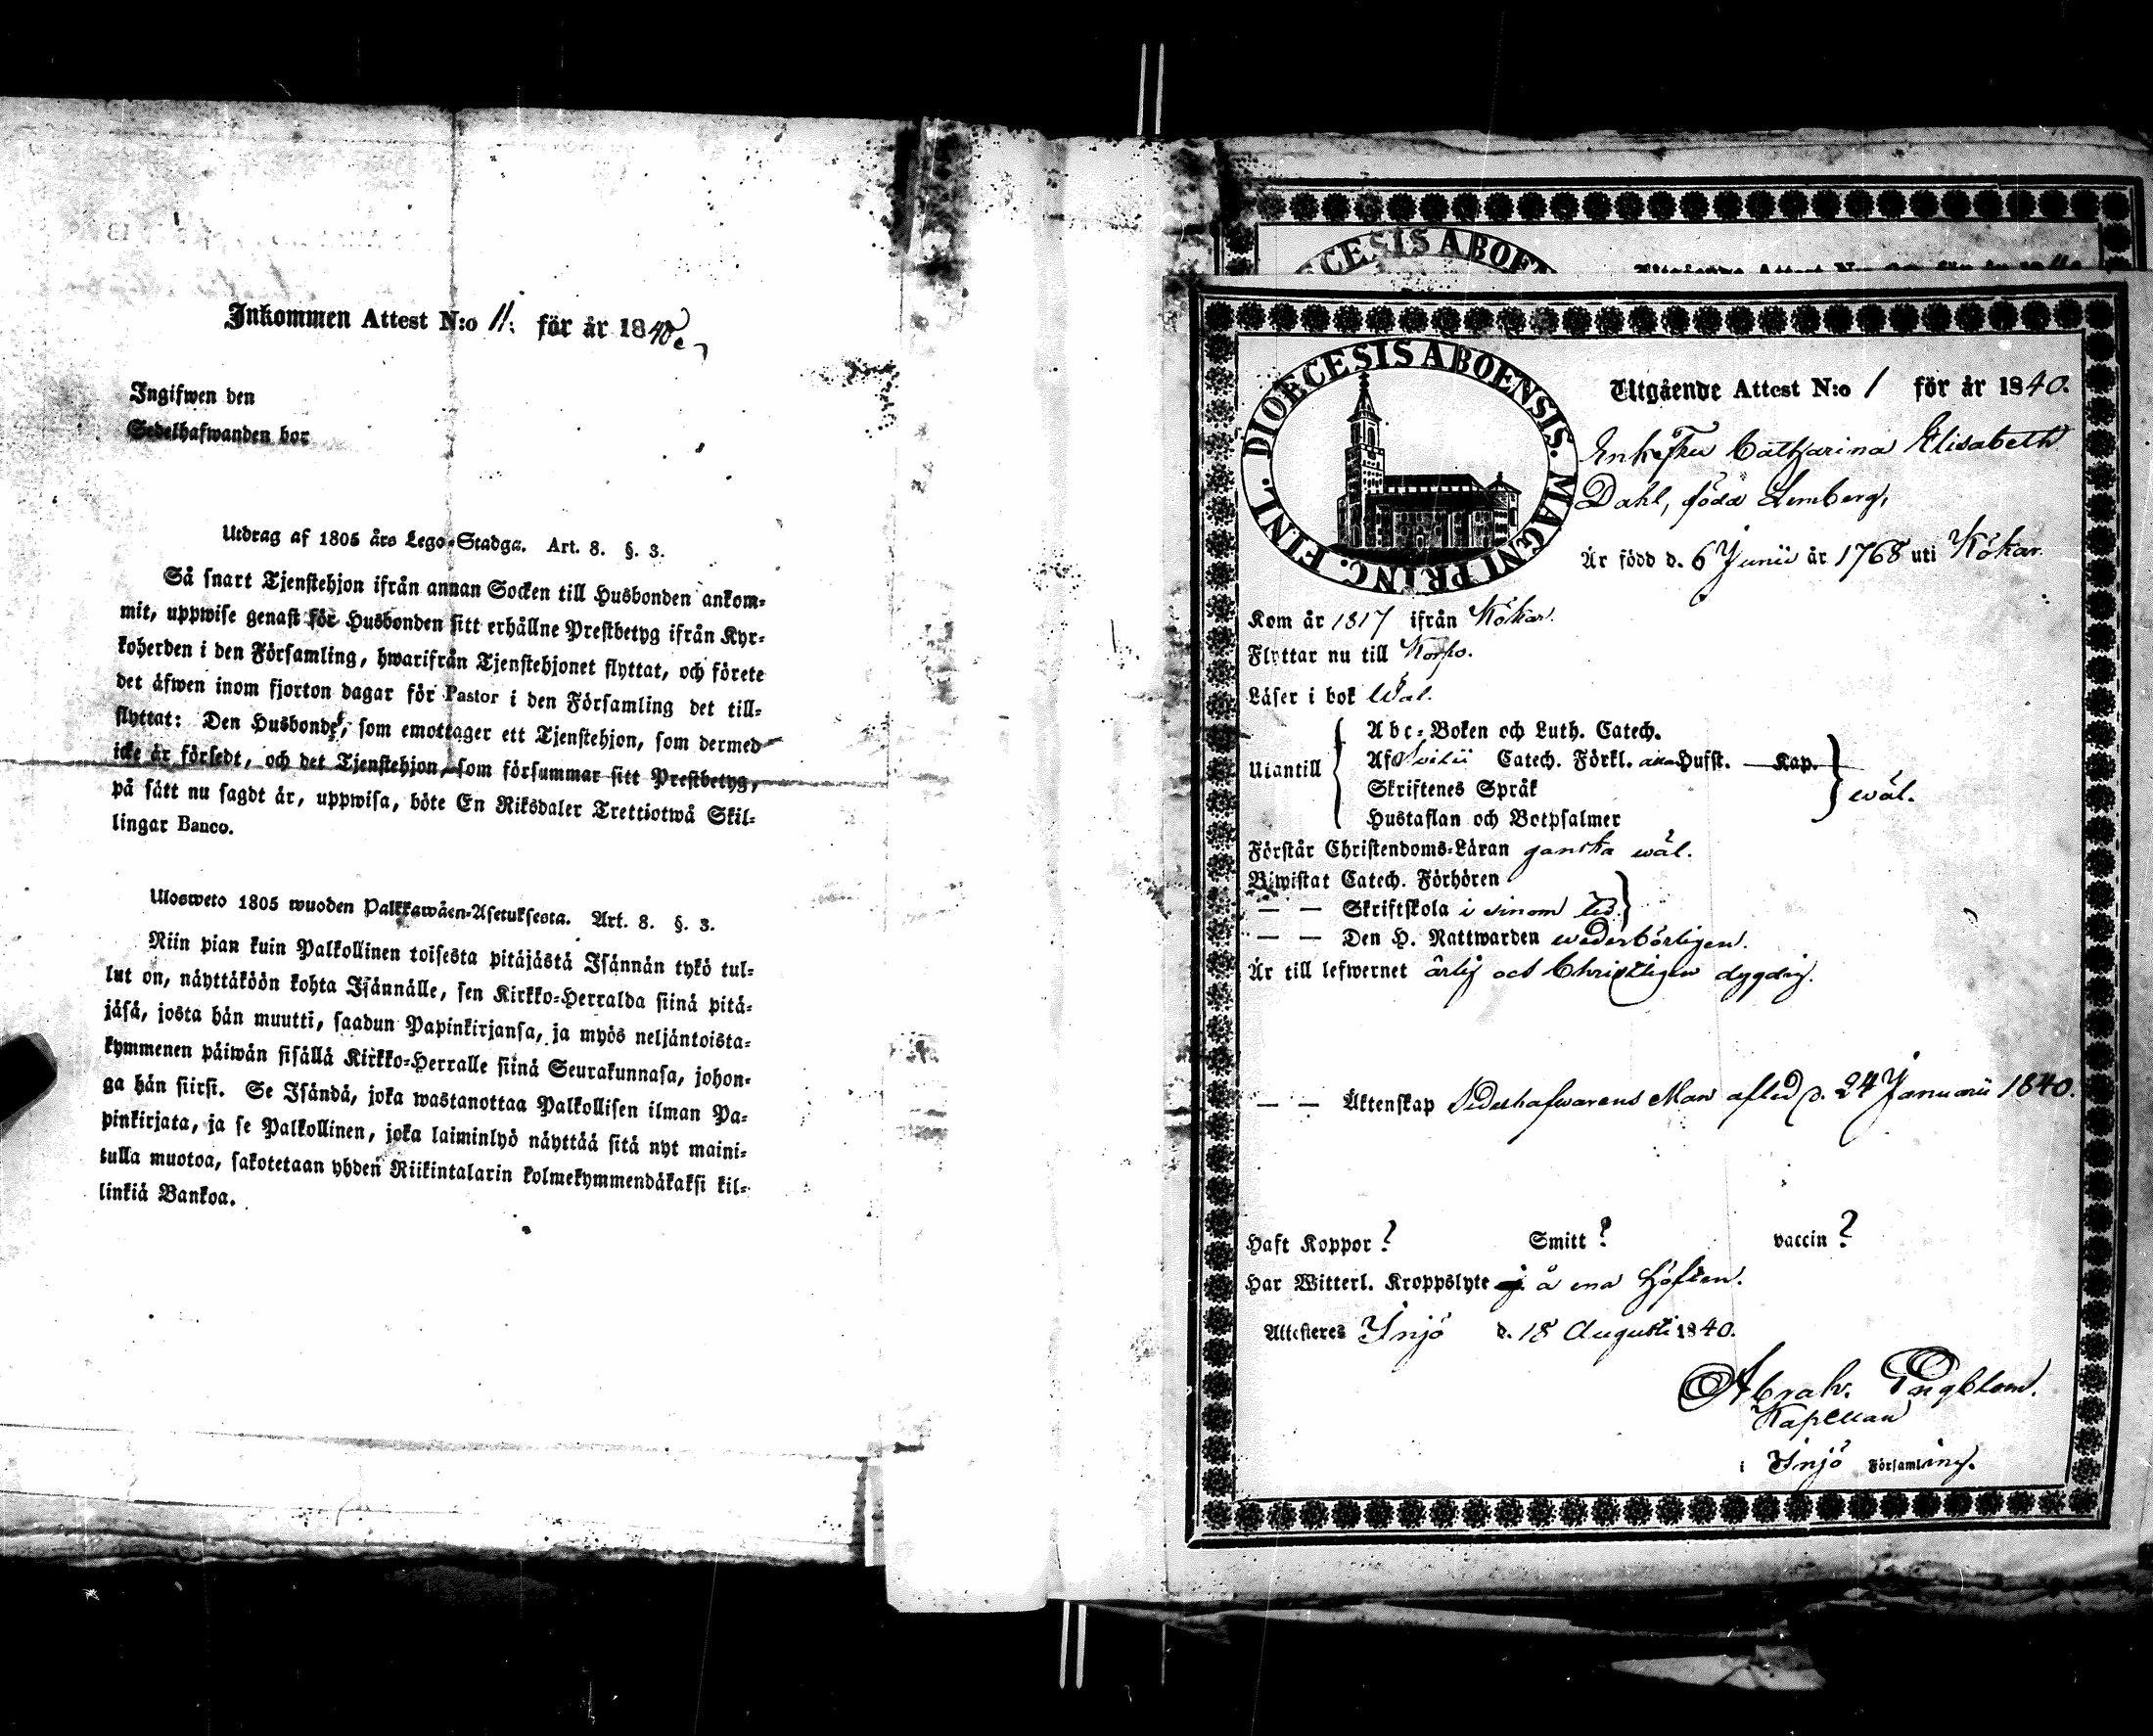 Inkommen Attest N:o 11. för år 1840.
Ingifwen den
Sedelhafwanden bor
Utdrag af 1805 års Lego-Stadga. Art. 8. §. 3.
Så snart Tjenstehjon ifrån annan Socken till Husbonden ankom-
mit, uppwise genast för Husbonden sitt erhållne Prestbetyg ifrån Kyr-
koherden i den Församling, hwarifrån Tjenstehjonet flyttat, och förete
det äfwen inom fjorton dagar för Pastor i den Församling det till-
flyttat: Den Husbonde, som emottager ett Tjenstehjon, som dermed
icke är försedt, och det Tjenstehjon, som försummar sitt Prestbetyg,
på sätt nu sagdt är, uppwisa, böte En Riksdaler Trettiotwå Skil-
lingar Banco.
Ulosweto 1805 wuoden Palkkawäen-Asetuksesta. Art. 8. §. 3.
Niin pian kuin Palkollinen toisesta pitäjästä Isännän tykö tul-
lut on, näyttäköön kohta Isännälle, sen Kirkko-Herralda siinä pitä-
jäsä, josta hän muutti, saadun Papinkirjansa, ja myös neljäntoista-
kymmenen päiwän sisällä Kirkko-Herralle siinä Seurakunnasa, johon-
ga hän siirsi. Se Isändä, joka wastanottaa Palkollisen ilman Pa-
pinkirjata, ja se Palkollinen, joka laiminlyö näyttää sitä nyt maini-
tulla muotoa, sakotetaan yhden Riikintalarin kolmekymmendäkaksi kil-
linkiä Bankoa.
DIOECESIS ABOE
DIOECESIS ABOENSIS. MAGNI PRINC. FINL.
Utgående Attest N:o 1 för år 1840.
EnkeFru Catharina Elisabeth
Dahl, född Lemberg,
Är född d. 6 Junii år 1768 uti Kökar.
Kom år 1817 ifrån Kökar.
Flyttar nu till Korpo.
Läser i bok Wäl.
Utantill
Abc-Boken och Luth. Catech.
Af Svebilii Catech. Förkl. Hufst. Kap.
Skriftenes Språk
Hustaflan och Botpsalmer
wäl.
Förstår Christendoms-Läran ganska wäl.
Biwistat Catech. Förhören
— — Skriftskola i sinom tid.
— — Den H. Nattwarden wederbörligen.
Är till lefwernet ärlig och Christligen dygdig.
— — Äktenskap Sedelhafwarens Man afled d. 24 Januarii 1840.
Haft Koppor? Smitt? vaccin?
Har Witterl. Kroppslyte å ena höften.
Attesteres Iniö d. 18 Augusti 1840.
Abrah. Engblom.
Kapellan
i Iniö Församling.